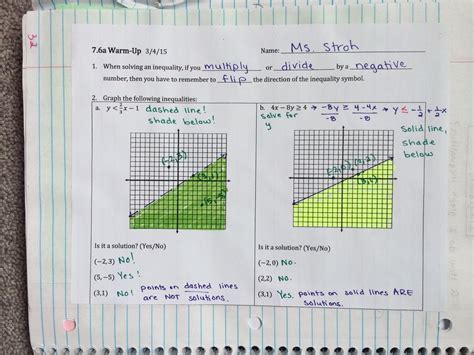 32
7.6a Warm-Up 3/4/15 Name: Ms. Stroh
1. When solving an inequality, if you multiply or divide by a negative
number, then you have to remember to flip the direction of the inequality symbol.
2. Graph the following inequalities:
a. y < 2/3 x − 1 dashed line!
shade below!
(-2,3)
(3,1)
(5,-5)
Is it a solution? (Yes/No)
(−2, 3) No!
(5, −5) Yes!
(3,1) No! points on dashed lines
are NOT solutions.
b. 4x − 8y ≥ 4 → -8y ≥ 4-4x → y ≤ -1/2 + 1/2 x
-8 -8
solve for
y
Solid line,
shade
below
(-2,0) (2,2)
(3,1)
Is it a solution? (Yes/No)
(−2, 0) No.
(2,2) No.
(3,1) Yes. points on solid lines ARE
solutions.